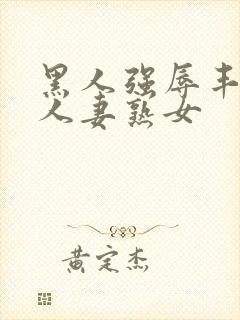 黑人强辱丰
人妻熟女
黄定杰